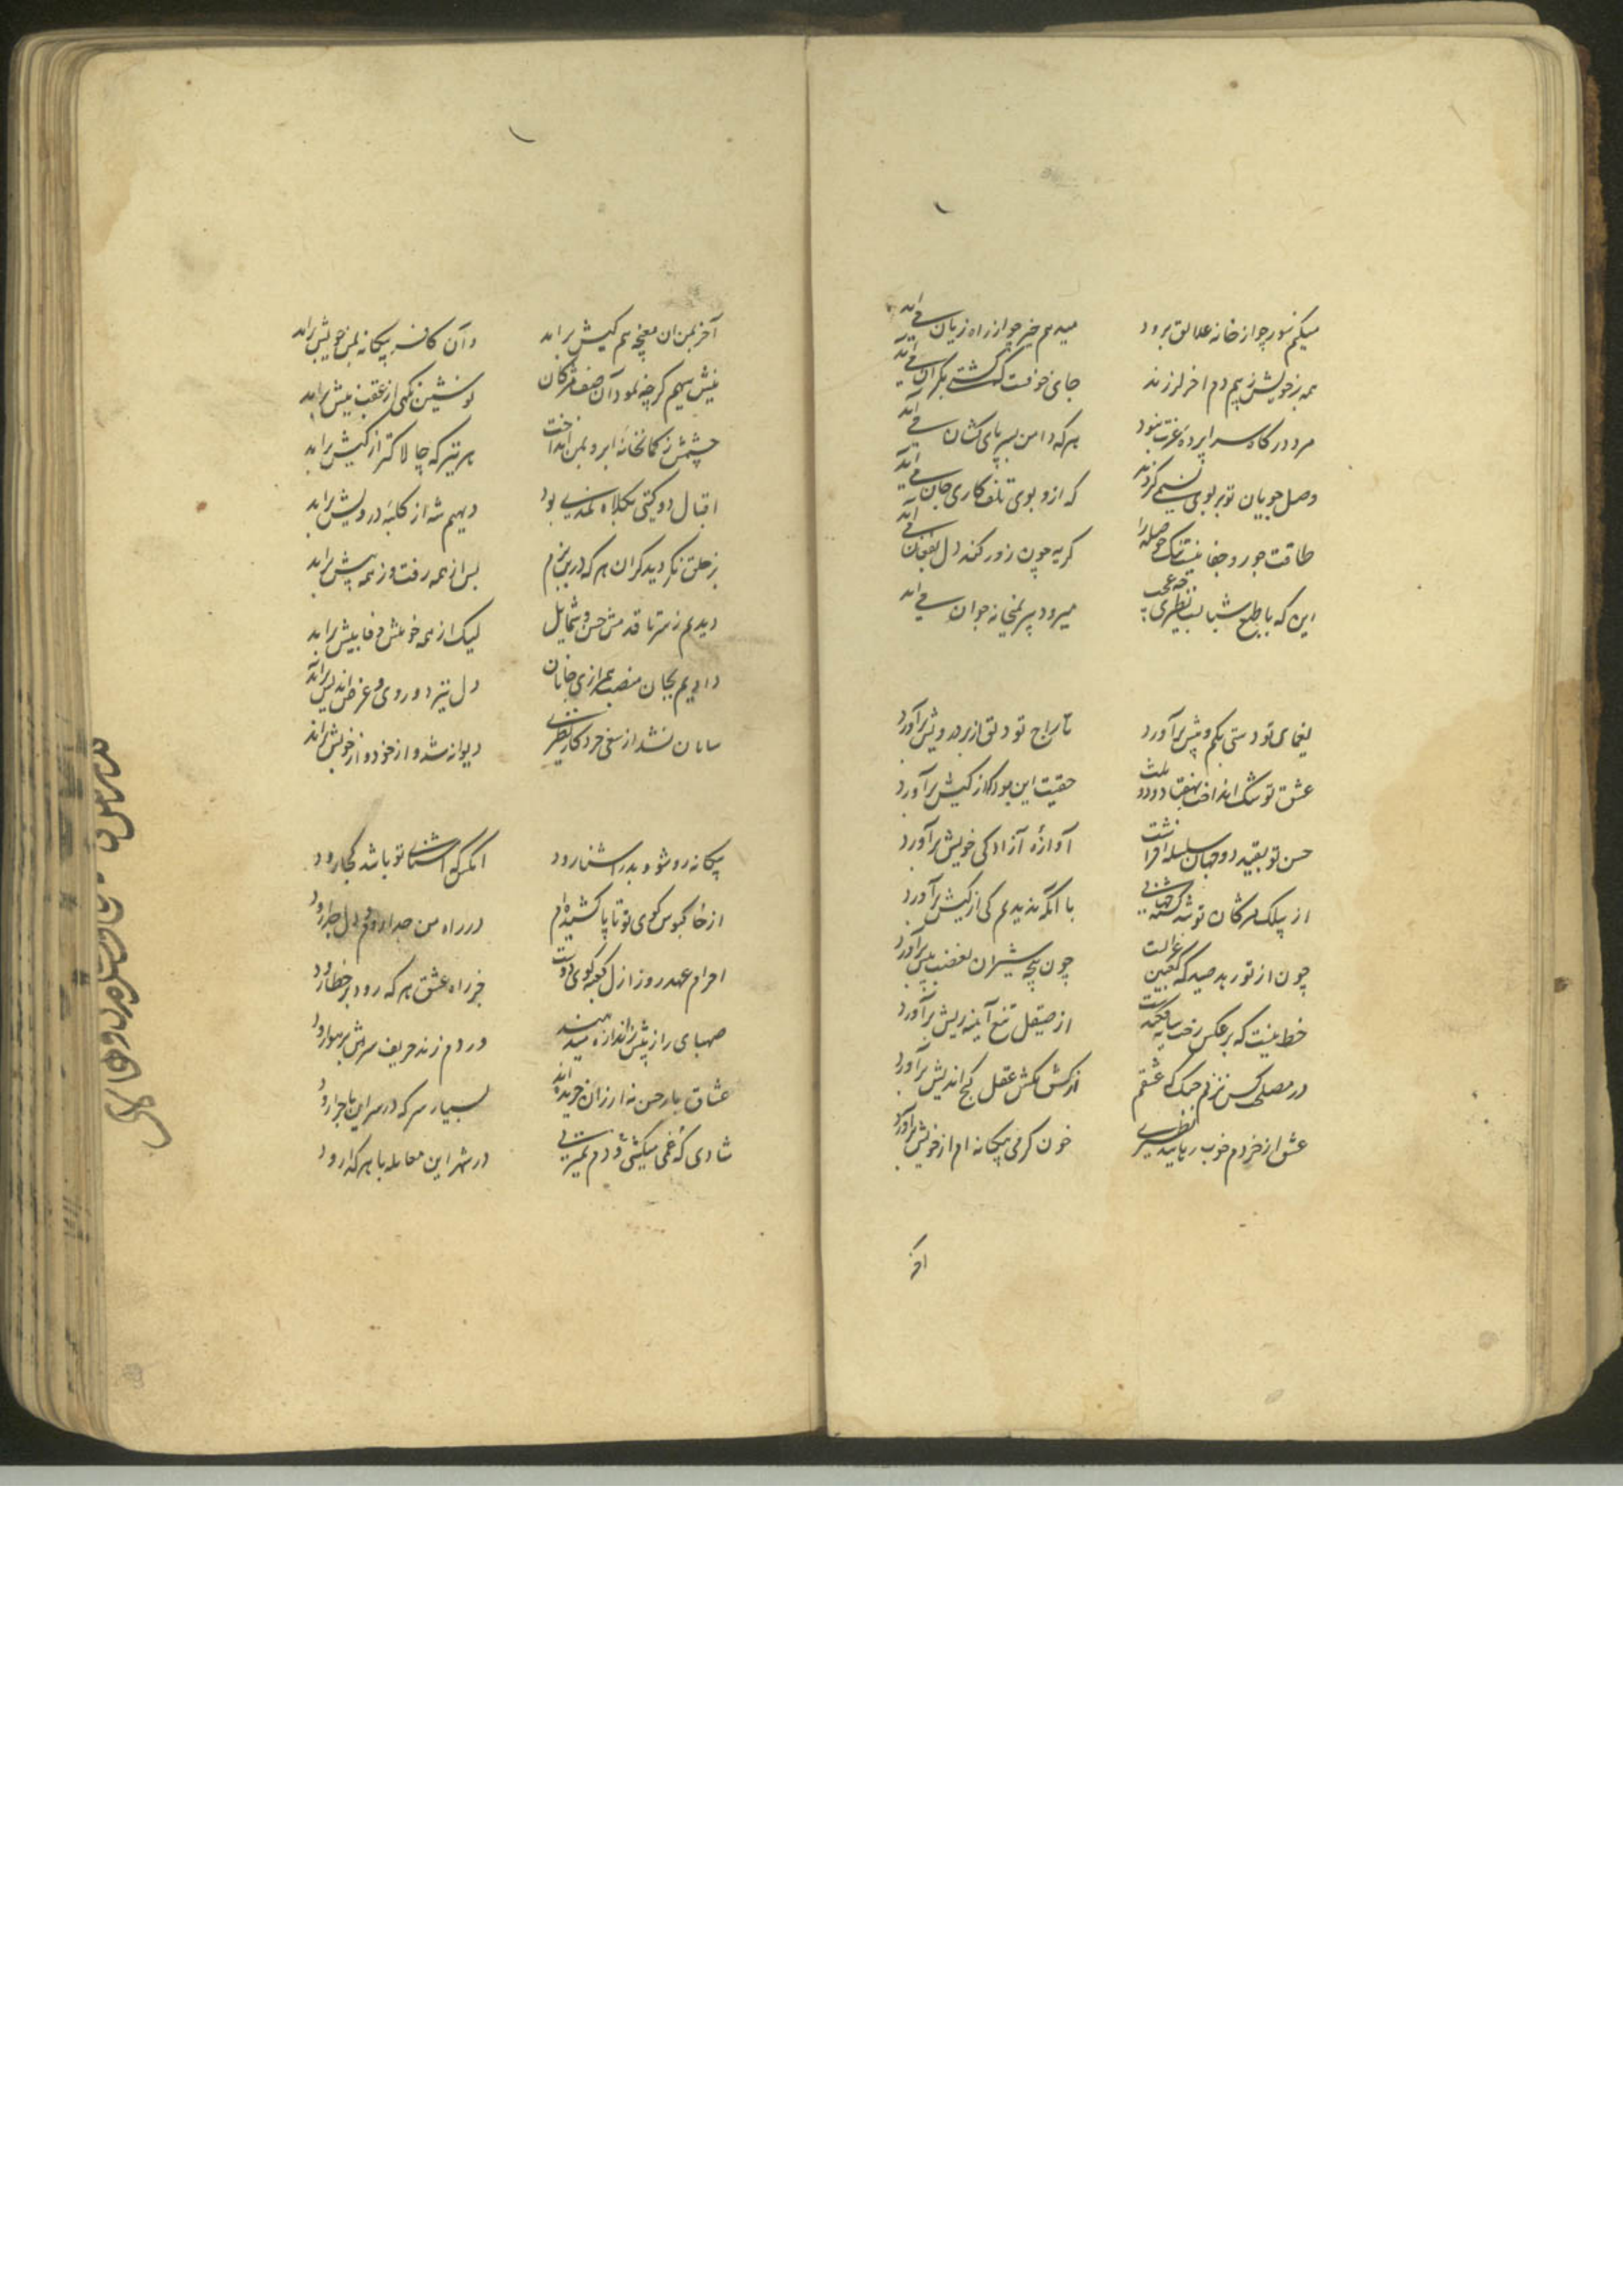 میکنم سور چو از خانه علائق برود
میدهم خیر چو از راه زیان می‌آید
همه بر خویش ز بیم دم آخر لرزند
جای خوفست که کشتی بکران می‌آید
مرد درگاه سراپرده عزت نبود
هر که دامن بسر پای کشان می‌آید
وصل جویان تو بر بوی نسیمی گروند
که ازو بوی تلف کاری جان می‌آید
طاقت جور و جفا نیست تنک حوصله را
گریه چون زور کند دل بفغان می‌آید
این که با طبع شبابست نظیری چه عجب
میرود پیر بمیخانه جوان می‌آید
یغمای تو دستی بکم و بیش برآورد
تاراج تو دلق از بر درویش برآورد
عشق تو شک انداخت بهفتاد و دو ملت
حقیت این بود که از کیش برآورد
حسن تو بقید دو جهان سلسله افراشت
آوازه آزادگی خویش برآورد
از پلک مژگان تو شد کشته جهانی
با آنکه ندیدیم کی از کیش برآورد
چون از تو رهد صید که کعبین غزالت
چون پنجه شیران بغضب نیش برآورد
خط نیست که بر عکس رخت سایه فکندست
از صیقل تیغ آینه ریش برآورد
در مصلحت کس نزنم چنگ که عشقم
از کشمکش عقل کج اندیش برآورد
عشق از خردم خوب ربایید نظیری
خون گرمی بیگانه ام از خویش برآورد
آخر
آخر بمن آن مغبچه هم کیش برآمد
وآن کافر بیگانه بمن خویش برآمد
نیش سهیم گرچه نمود آن صف مژگان
نوشین نگهی از عقب نیش برآمد
چشمش ز کمانخانه ابرو بمن انداخت
هر تیر که چالاکتر از کیش برآمد
اقبال دو گیتی بکلاه نمدی بود
دیهیم شه از کلبه درویش برآمد
ز خلق نگردید گران هر که درین بزم
پس از همه رفت و ز همه پیش برآمد
دیدیم ز سر تا قدمش حسن و شمایل
لیک از همه خوبیش وفا بیش برآمد
دادیم بجان منصب همرازی جانان
دل نیز دوروی و غرض اندیش برآمد
سامان نشد از سعی خرد کار نظیری
دیوانه شد و از خود و از خویش برآمد
بیگانه رو شود بدر آشنا رود
آنکس که آشنای تو باشد کجا رود
از خاکبوس کوی تو تا پا کشیده‌ام
در راه من جدا رود و دل جدا رود
احرام عهد روز ازل کعبه کوی دوست
جز راه عشق هر که رود بر خطا رود
صهبای راز بیش ز اندازه میدهند
در دم زند حریف سرش بر هوا رود
عشاق بار حسن نه ارزان خریده اند
بسیار سر که در سر این ماجرا رود
شادی که غمی میکشی و دم نمیزنی
در شهر این معامله با هر گدا رود